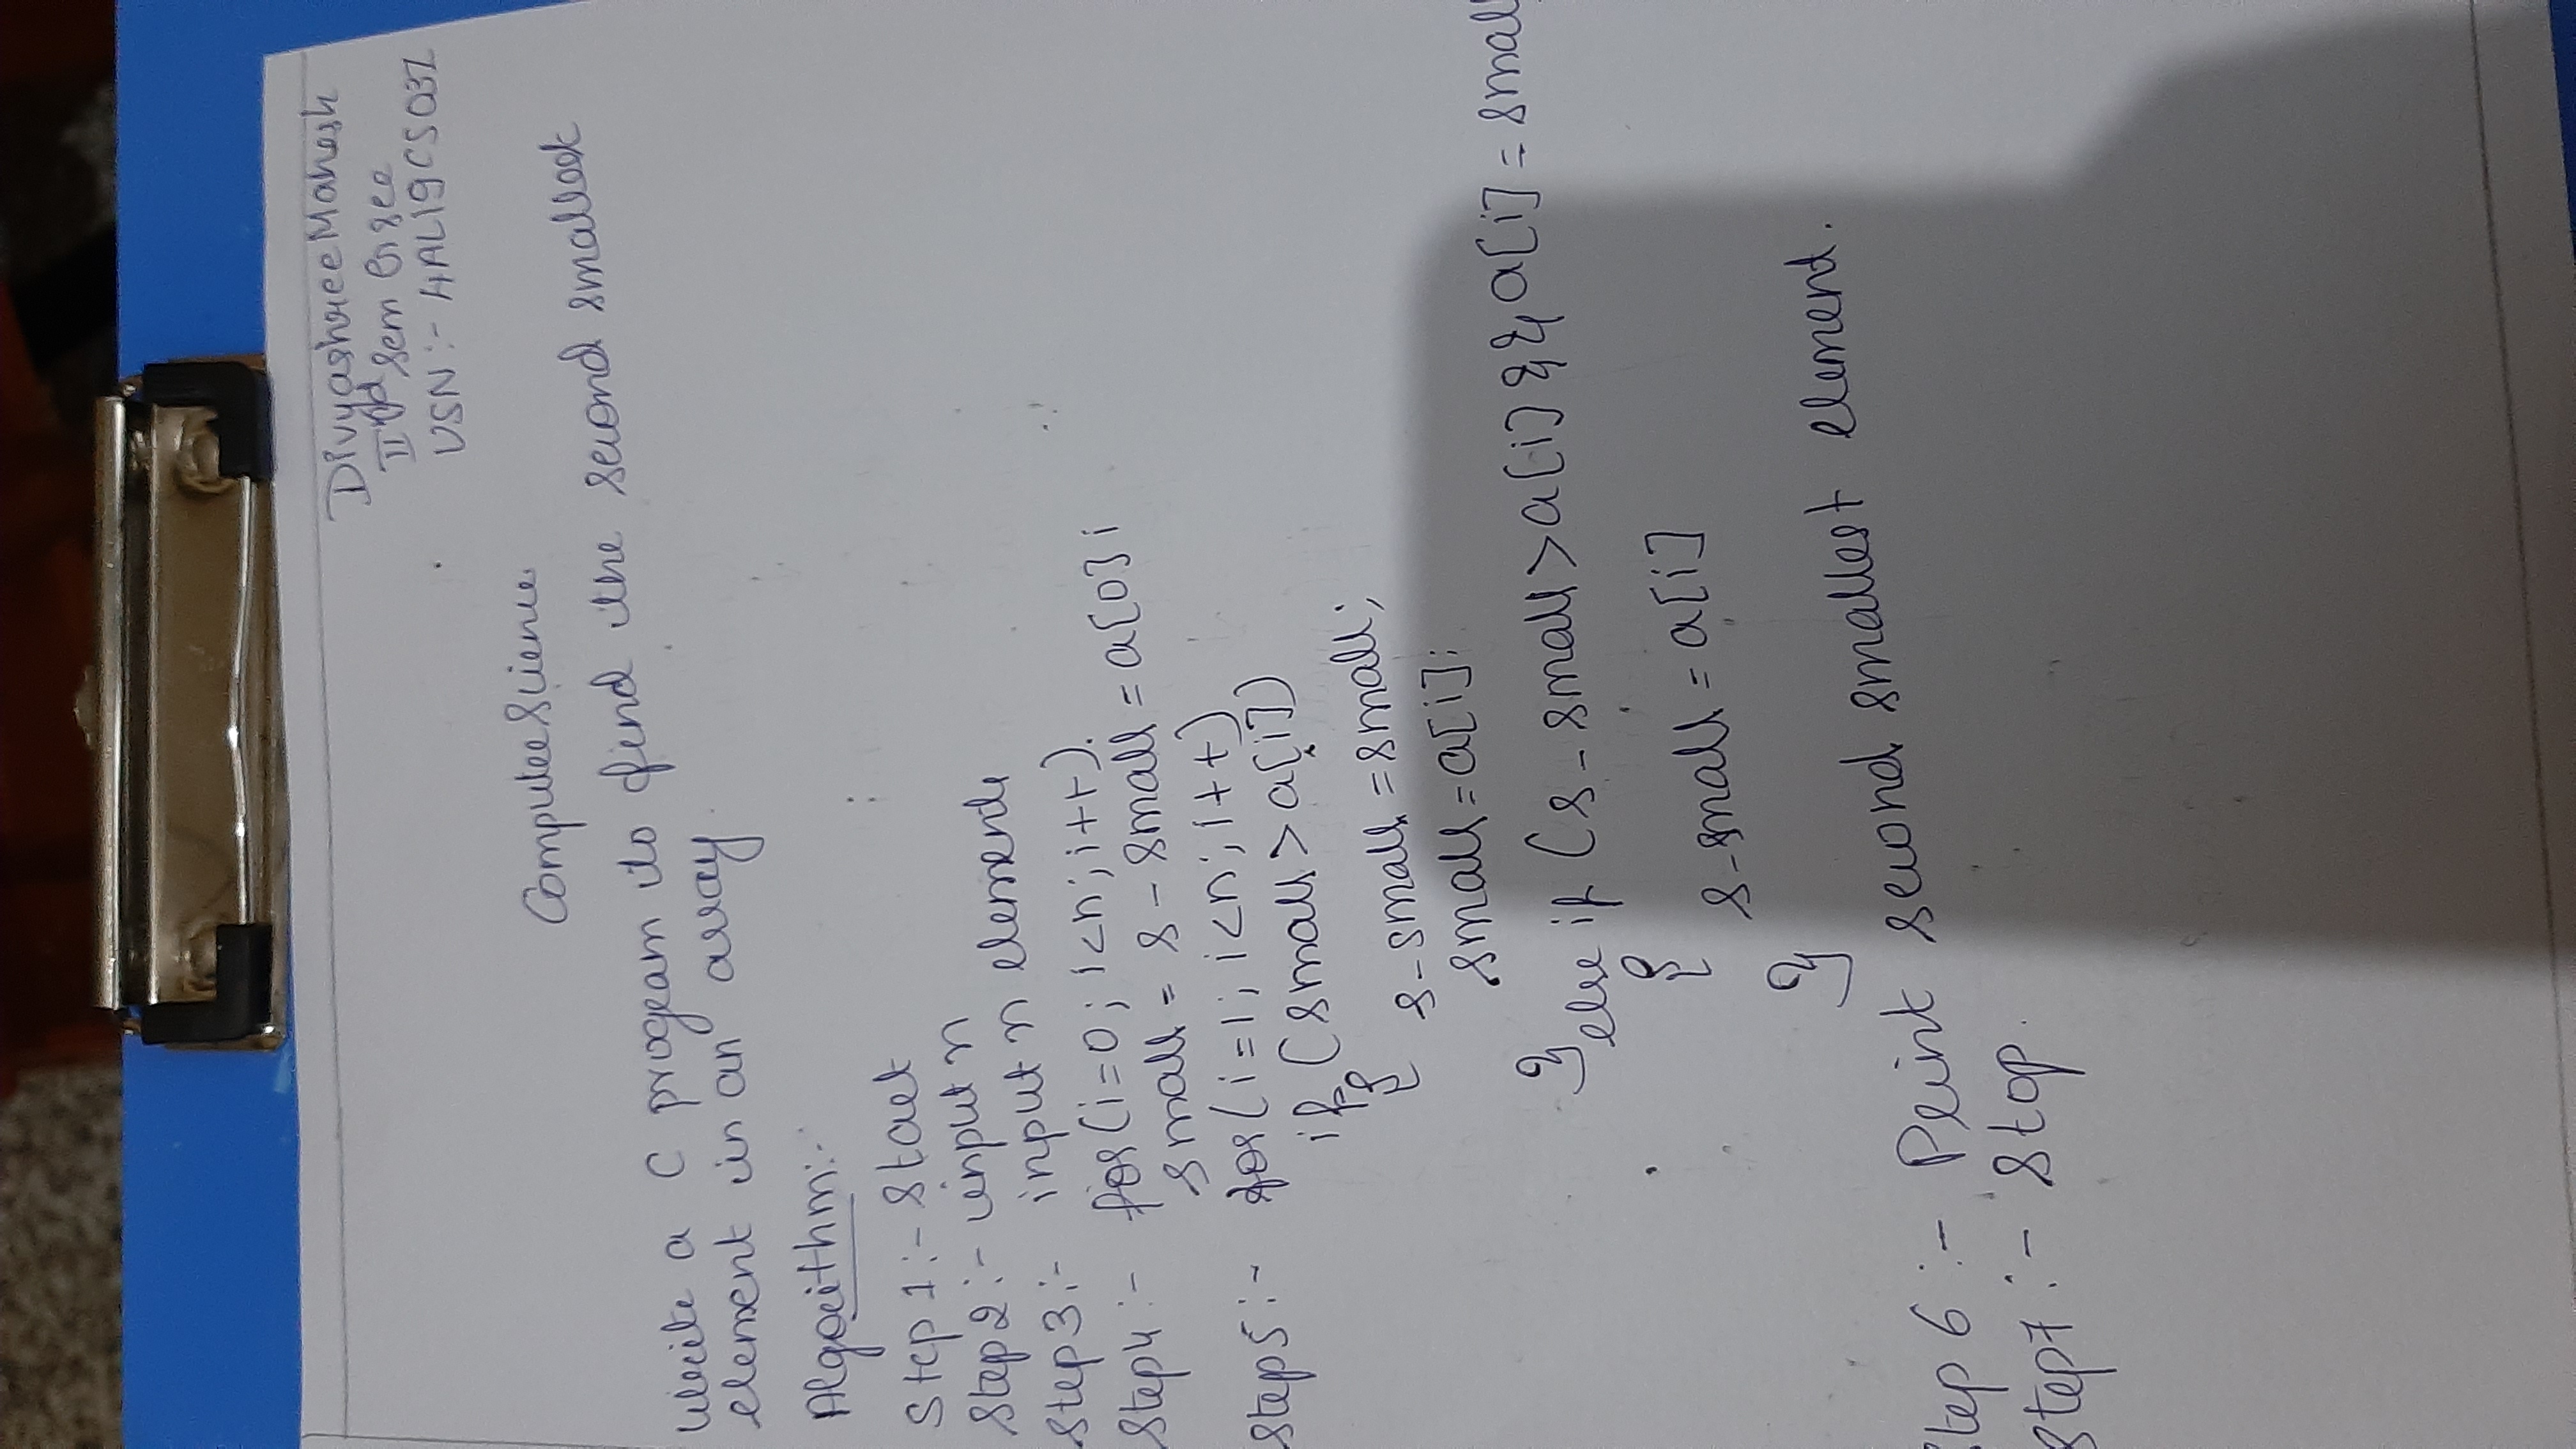 Divyashree Mahesh
IInd Sem
USN :- 4AL19CS031
Computer Science
Write a C program to find the second smallest
element in an array.
Algorithm:-
Step 1 :- Start
Step 2 :- input n
Step 3 :- input n elements
Step 4 :- for(i=0; i<n; i++).
small = s-small = a[0];
Step 5 :- for(i=1; i<n; i++)
if (small > a[i])
{
s-small = small;
small = a[i];
}
else if (s-small > a[i] && a[i] = small
{
s-small = a[i]
}
Step 6 :- Print second smallest element.
Step 7 :- Stop.